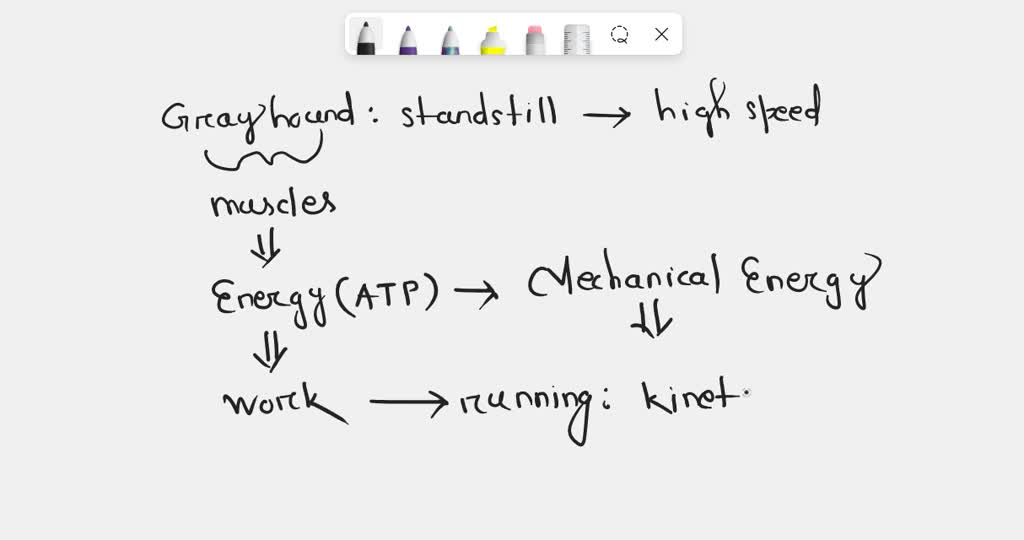 Greyhound: standstill → high speed
muscles
⇓
Energy (ATP) → Mechanical Energy
⇓ ⇓
work → running: kinet